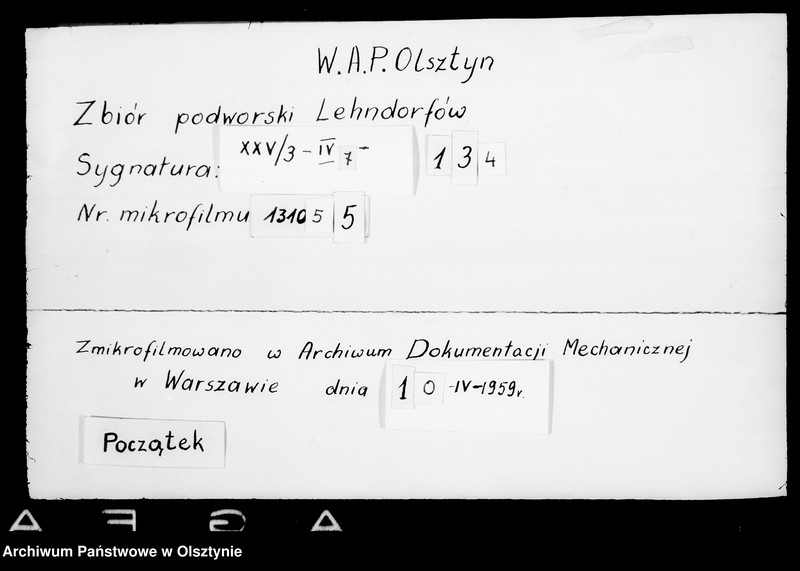 W.A.P. Olsztyn
Zbiór podworski Lehndorfów
Sygnatura: XXV/3 - IV 7 - 134
Nr. mikrofilmu 13105 5
Zmikrofilmowano w Archiwum Dokumentacji Mechanicznej
w Warszawie dnia 10 -IV-1959r.
Początek
Archiwum Państwowe w Olsztynie